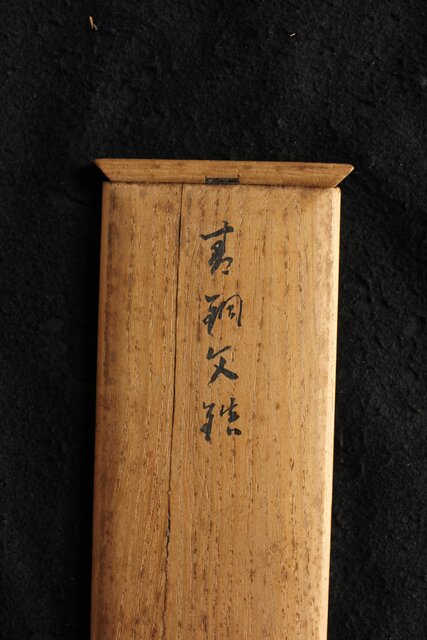 青銅文鎮